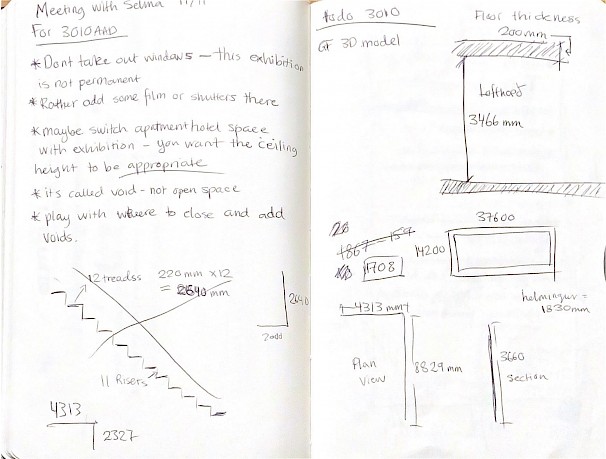 Meeting with Selma 11/11
For 3010AAD
* Dont take out windows – this exhibition
is not permanent
* Rather add some film or shutters there
* maybe switch apartmenthotel space
with exhibition – you want the ceiling
height to be appropriate
* its called void - not open space
* play with where to close and add
voids.
12 treadss 220 mm x12
= 2640 mm
2640
11 Risers
4313
2327
todo 3010
GF 3D model
Floor thickness
200mm
Lofthoed
3466 mm
1708
37600
14200
helminger =
1830mm
4313 mm
Plan
View
8829 mm
3660
section